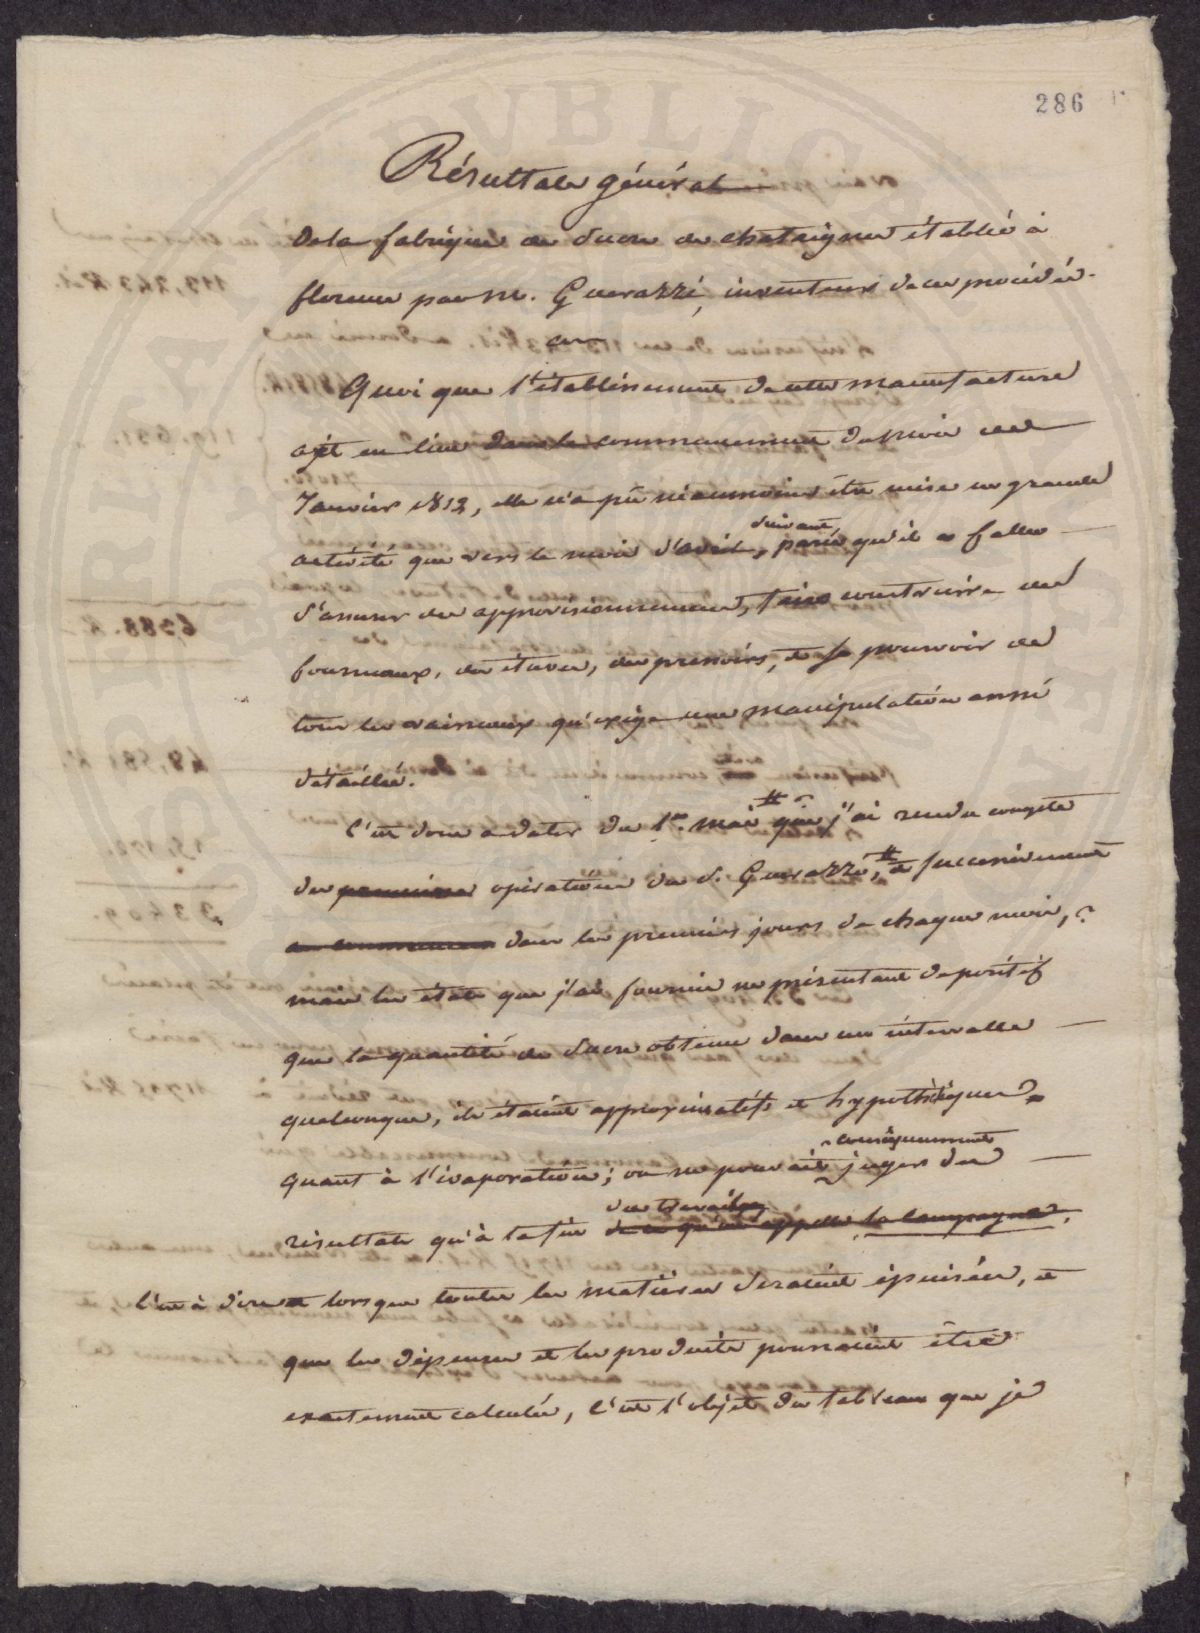 286
Résultats général
De la fabrique de Sucre de chataignes établie à
florence par M. Guerazzi, inventeur de ce procédé.
Quoi que l'établissement de cette manufacture
ait eu lieu dans le commencement du mois de
Janvier 1812, elle n'a pû néanmoins être mise en grande
activité que vers le mois d'avril, suivant, parce qu'il a fallu
s'assurer des approvisionnemens, faire construire des
fourneaux, des étuves, des pressoirs, et se pourvoir de
tous les vaisseaux qu'exige une manipulation aussi
détaillée.
C'est donc a dater du 1er. mai # que j'ai rendu compte
des premieres opérations du S. Guerazzi, # et successivement
a commencer dans les premiers jours de chaque mois,
mais les états que j'ai fournis ne présentant de positif
que la quantité de Sucre obtenu dans un intervalle
quelconque, ils étaient approximatifs et hypothétiques
quant à l'évaporation; on ne pouvait conséquemment juger des
résultats qu'à la fin des travaux de ce qu'on appelle la campagne,
c'est à dire lorsque toutes les matières seraient épuisées, et
que les dépenses et les produits pourraient être
exactement calculés, C'est l'objet du tableau que je